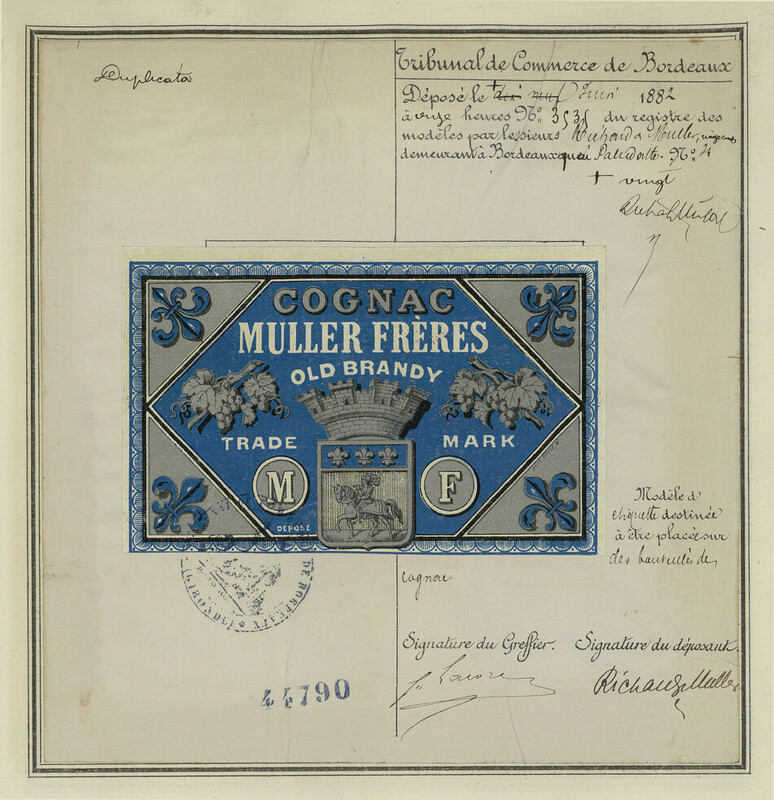 Duplicata
Tribunal de Commerce de Bordeaux
Déposé le + dix neuf Juin 1882
à onze heures N° 3535 du registre des
modèles par les sieurs Richard & Muller,
demeurant à Bordeaux quai N°
+ vingt
COGNAC
MULLER FRÈRES
OLD BRANDY
TRADE MARK
M F
DEPOSÉ
Modèle d'
étiquette destinée
à être placée sur
des bouteilles de
cognac
DE BORDEAUX
Signature du Greffier. Signature du déposant.
Richard & Muller
44790